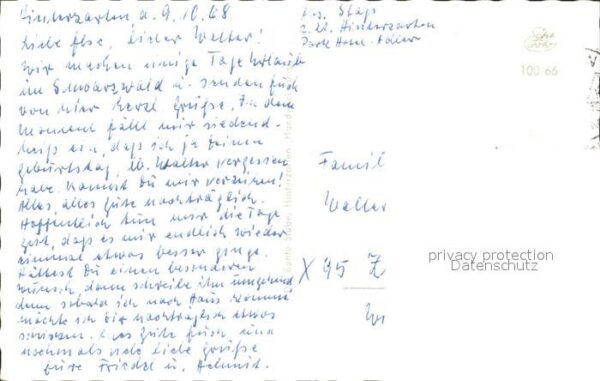 Hinterzarten d. 9.10.68
Liebe Ilse, lieber Walter!
Wir machen einige Tage Urlaub
im Schwarzwald u. senden Euch
von hier herzl. Grüße. In dem
Moment fällt mir siedend-
heiß ein, daß ich ja Deinen
Geburtstag, lb. Walter vergessen
habe. Kannst Du mir verzeihen!
Alles, alles Gute nachträglich.
Hoffentlich tun mir die Tage
gut, daß es mir endlich wieder
einmal etwas besser ginge.
Hättest Du einen besonderen
Wunsch, dann schreibe ihn umgehend
denn sobald ich nach Haus komme
möchte ich Dir nachträglich etwas
schicken. Alles Gute Euch und
nochmals viele liebe Grüße
Eure Friedel u. Helmut.
z. Zt. Hinterzarten
Park Hotel Adler
100/66
Famil
Walter
X 95 Z
privacy protection
Datenschutz